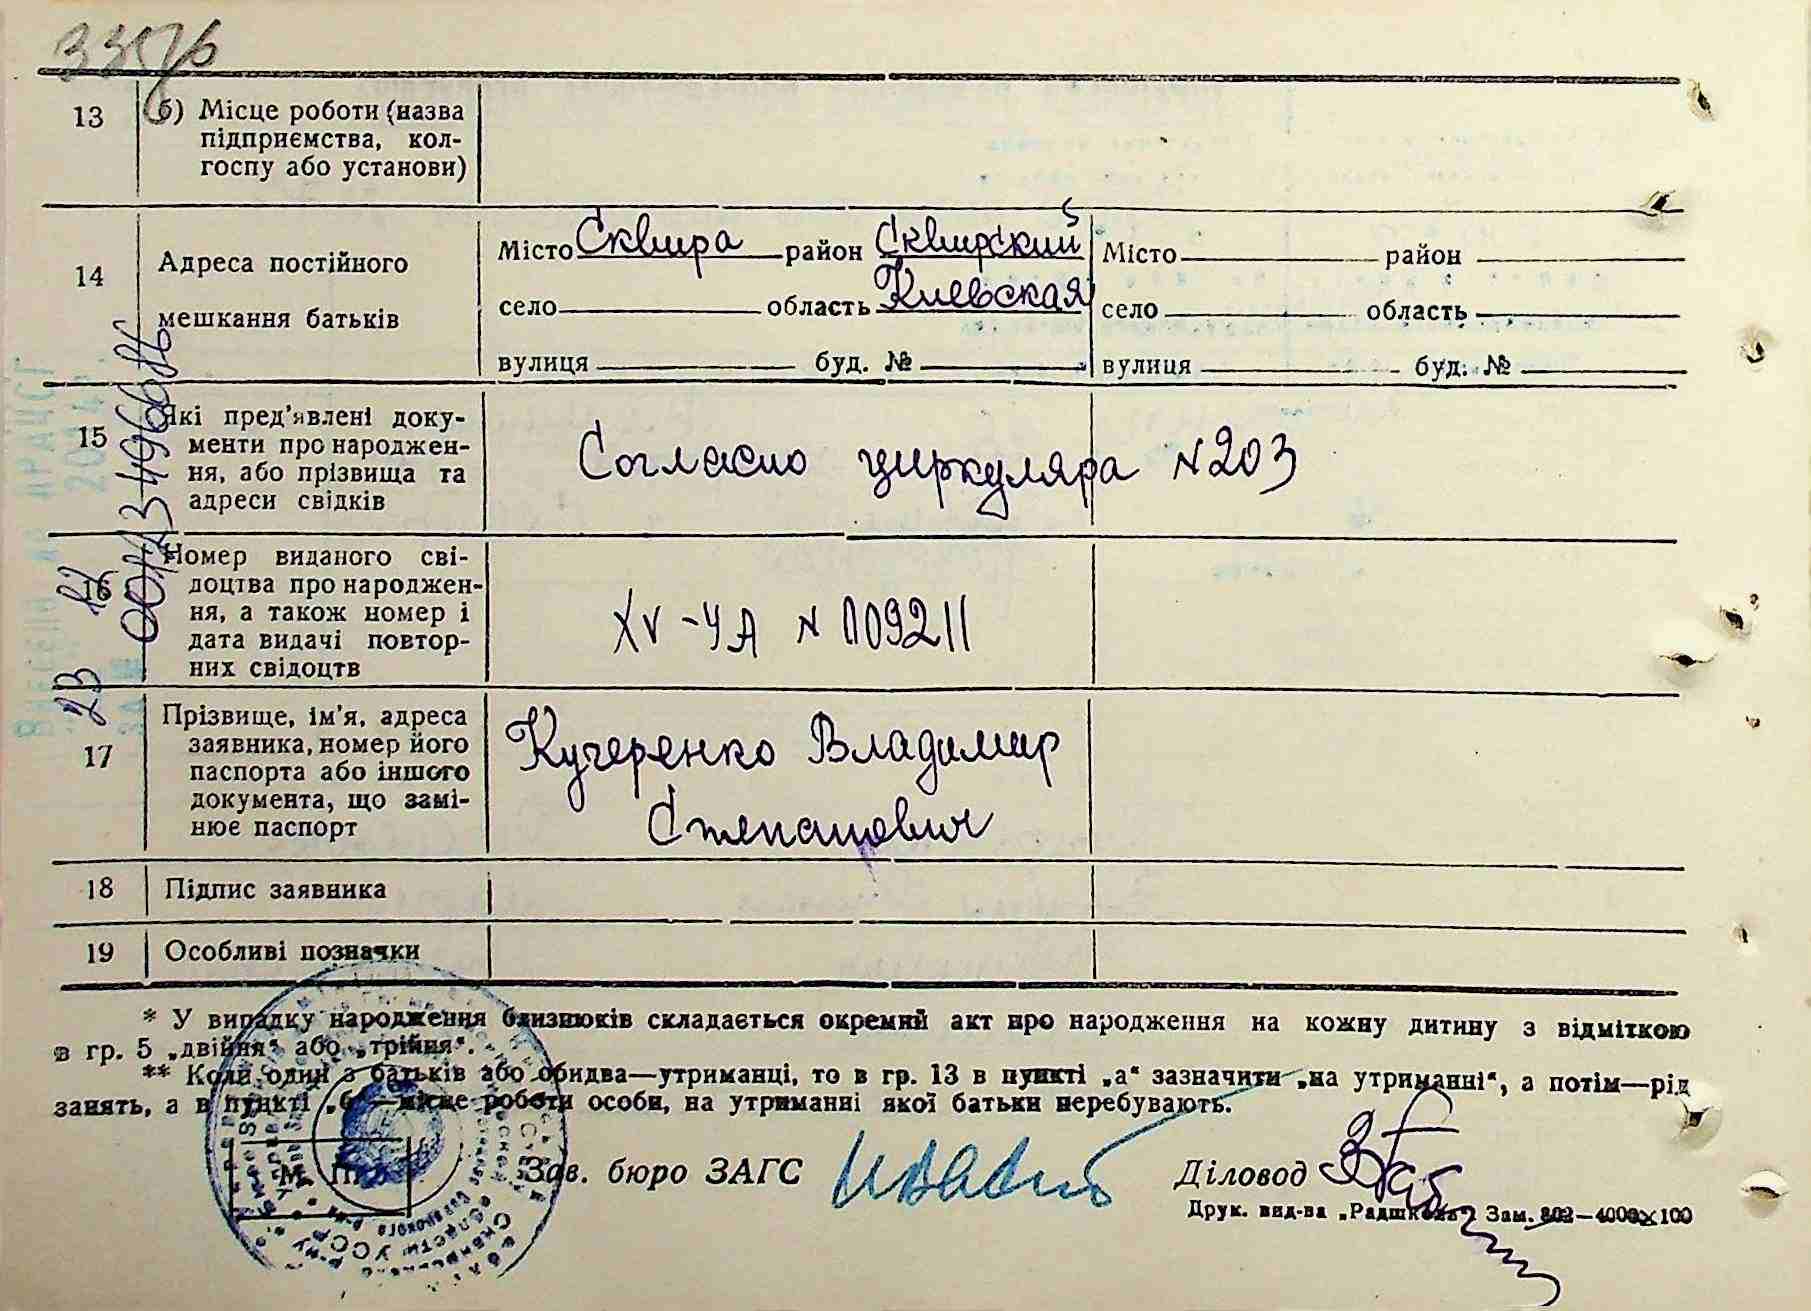 13 б) Місце роботи (назва
підприємства, кол-
госпу або установи)
14 Адреса постійного
мешкання батьків
Місто Сквира район Сквирский
село область Киевская
вулиця буд. №
Місто район
село область
вулиця буд. №
15 Які пред’явлені доку-
менти про народжен-
ня, або прізвища та
адреси свідків
Согласно циркуляра N 203
16 Номер виданого сві-
доцтва про народжен-
ня, а також номер і
дата видачі повтор-
них свідоцтв
XV-ЧА N 009211
17 Прізвище, ім’я, адреса
заявника, номер його
паспорта або іншого
документа, що замі-
нює паспорт
Кучеренко Владимир
Степанович
18 Підпис заявника
19 Особливі позначки
* У випадку народження близнюків складається окремий акт про народження на кожну дитину з відміткою
в гр. 5 „двійня“ або „трійня“.
** Коли один з батьків або обидва—утриманці, то в гр. 13 в пункті „а“ зазначити „на утриманні“, а потім—рід
занять, а в пункті „б“—місце роботи особи, на утриманні якої батьки перебувають.
М. П.
Зав. бюро ЗАГС
Діловод
Друк. вид-ва „Радшкола“ Зам. 802—4000×100